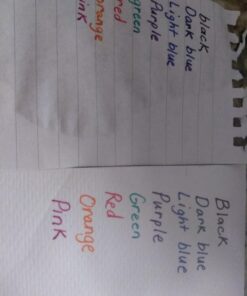 black
Dark blue
Light blue
Purple
green
red
orange
pink
Black
Dark blue
Light blue
Purple
Green
Red
Orange
Pink